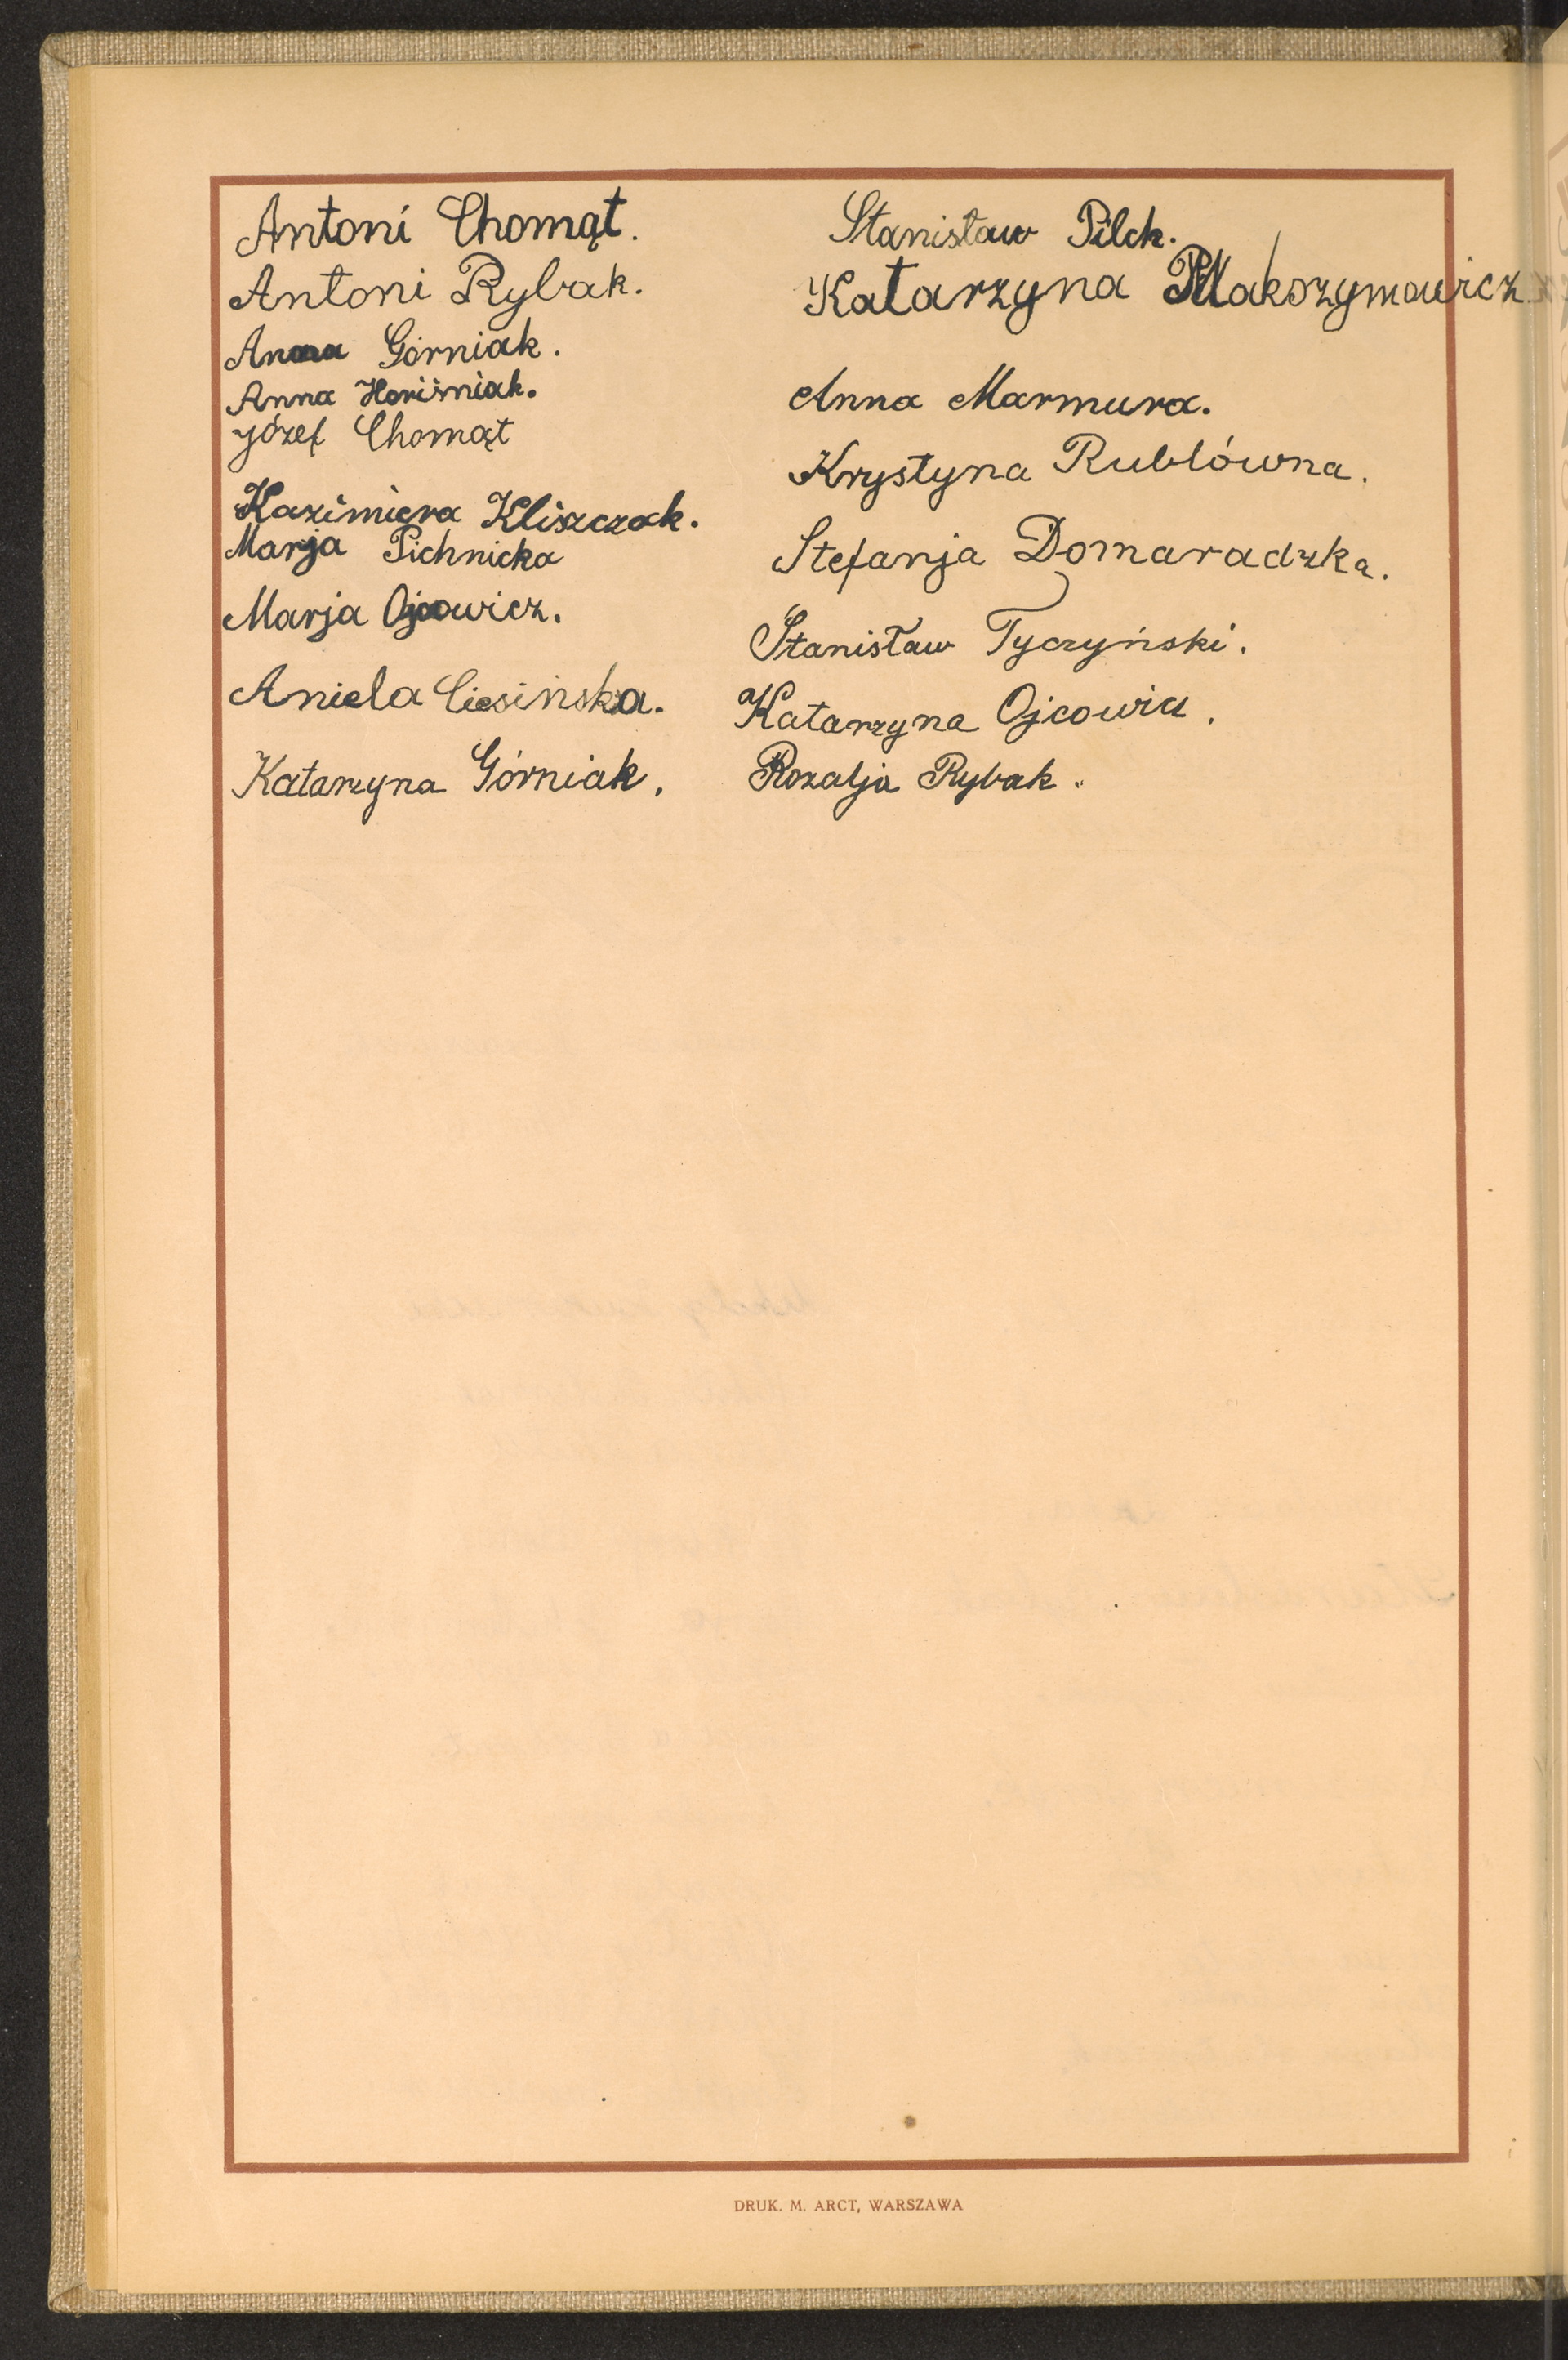 Antoni Chomąt.
Antoni Rybak.
Anna Górniak.
Anna Horiśniak.
Józef Chomąt
Kazimiera Kliszczak.
Marja Pichnicka
Marja Ojcowicz.
Aniela Ciesińska.
Katarzyna Górniak.
Stanisław Pilch.
Katarzyna Makszymowicz
Anna Marmura.
Krystyna Rublówna.
Stefanja Domaradzka.
Stanisław Tyczyński.
Katarzyna Ojcowicz.
Rozalja Rybak.
DRUK. M. ARCT, WARSZAWA